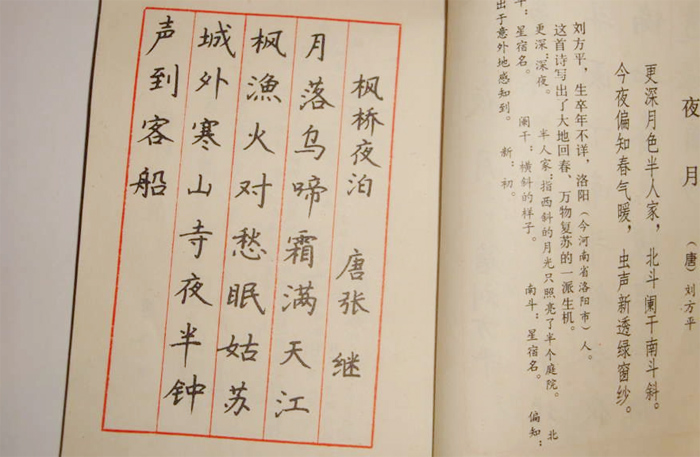 夜月 （唐）刘方平
更深月色半人家，北斗阑干南斗斜。
今夜偏知春气暖，虫声新透绿窗纱。
刘方平，生卒年不详，洛阳（今河南省洛阳市）人。
这首诗写出了大地回春、万物复苏的一派生机。
更深：深夜。 半人家：指西斜的月光只照亮了半个庭院。 北
斗：星宿名。 阑干：横斜的样子。 南斗：星宿名。 偏知：
出于意外地感知到。 新：初。
枫桥夜泊 唐张继
月落乌啼霜满天江
枫漁火对愁眠姑苏
城外寒山寺夜半钟
声到客船